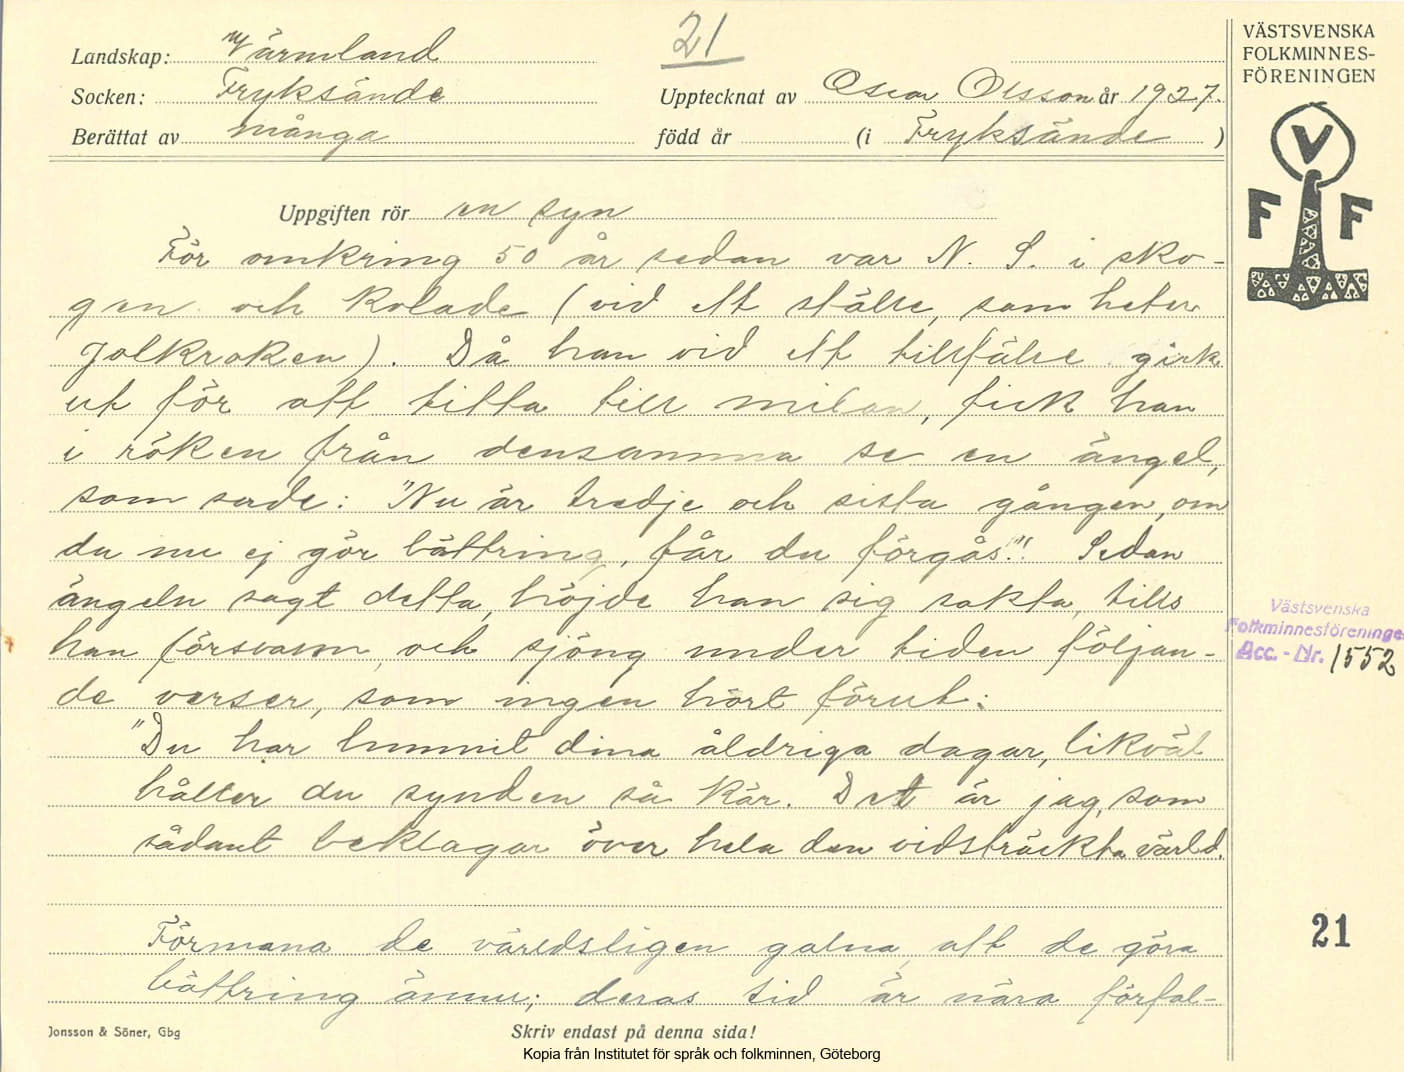 21
Landskap: Värmland
Socken: Fryksände
Upptecknat av Oscar Olsson år 1927.
Berättat av många
född år (i Fryksände )
VÄSTSVENSKA
FOLKMINNES-
FÖRENINGEN
V
F F
Uppgiften rör en syn
För omkring 50 år sedan var N. S. i sko-
gen och kolade (vid ett ställe, som heter
Jolkroken). Då han vid ett tillfälle gick
ut för att titta till milan, fick han
i röken från densamma se en ängel,
som sade: "Nu är tredje och sista gången, om
du nu ej gör bättring, får du förgås!" Sedan
ängeln sagt detta, höjde han sig sakta, tills
han försvann, och sjöng under tiden följan-
de verser, som ingen hört förut:
"Du har hunnit dina åldriga dagar, likväl
håller du synden så kär. Det är jag, som
sådant beklagar över hela den vidsträckta värld.
Förmana de världsligen galna, att de göra
bättring ännu; deras tid är nära förfal-
Västsvenska
Folkminnesföreningen
Acc. - Nr. 1552
21
Jonsson & Söner, Gbg
Skriv endast på denna sida!
Kopia från Institutet för språk och folkminnen, Göteborg